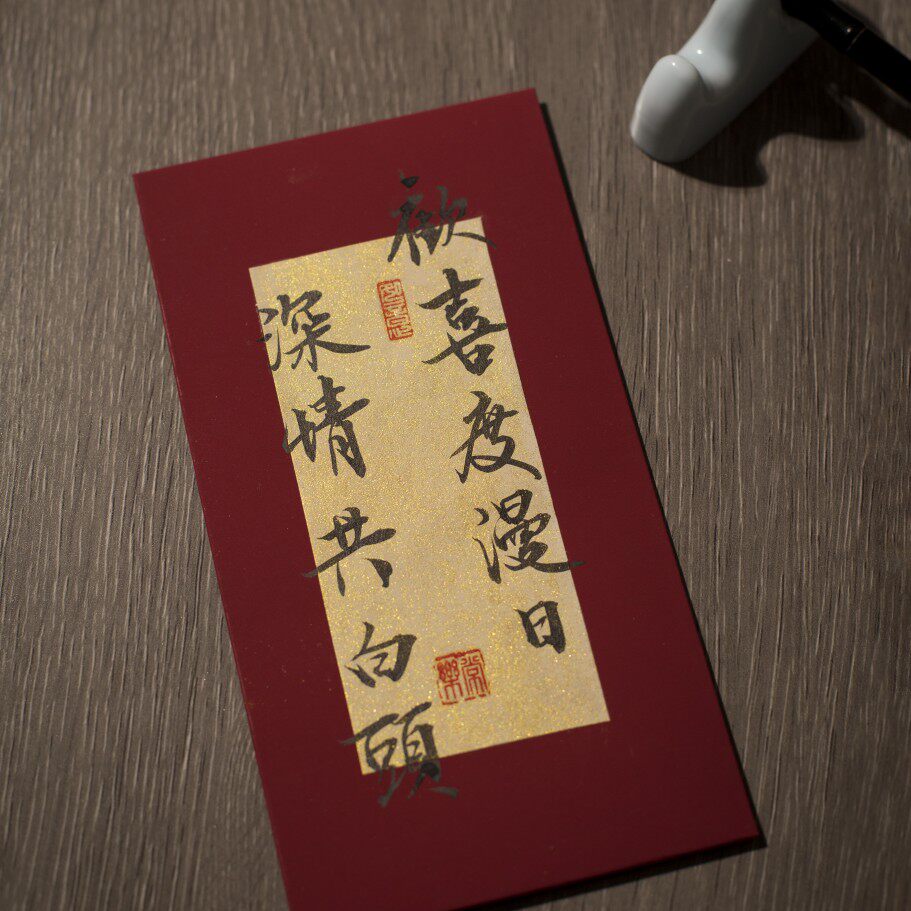 歡喜度漫日
深情共白頭
常樂